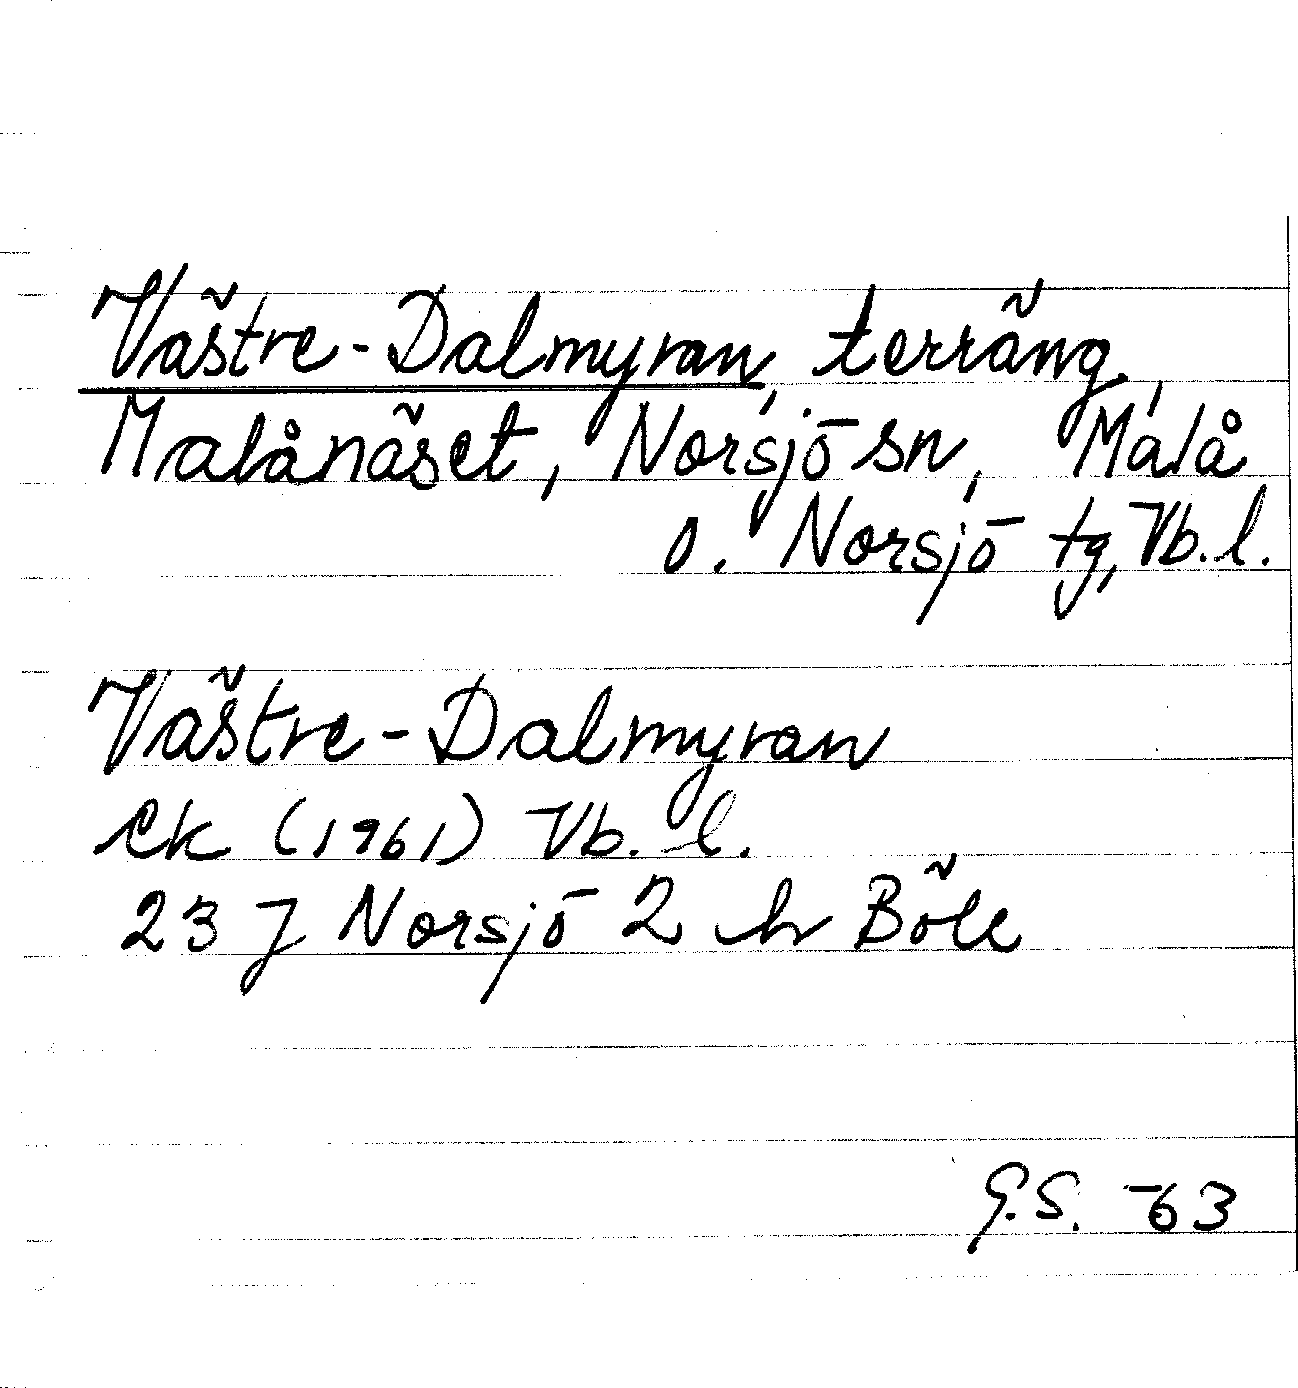 Västre-Dalmyran, terräng,
Malånäset, Norsjö sn, Malå
o. Norsjö tg, Vb. l.
Västre-Dalmyran
ek (1961) Vb. l.
23 J Norsjö 2 h Böle
G.S. -63